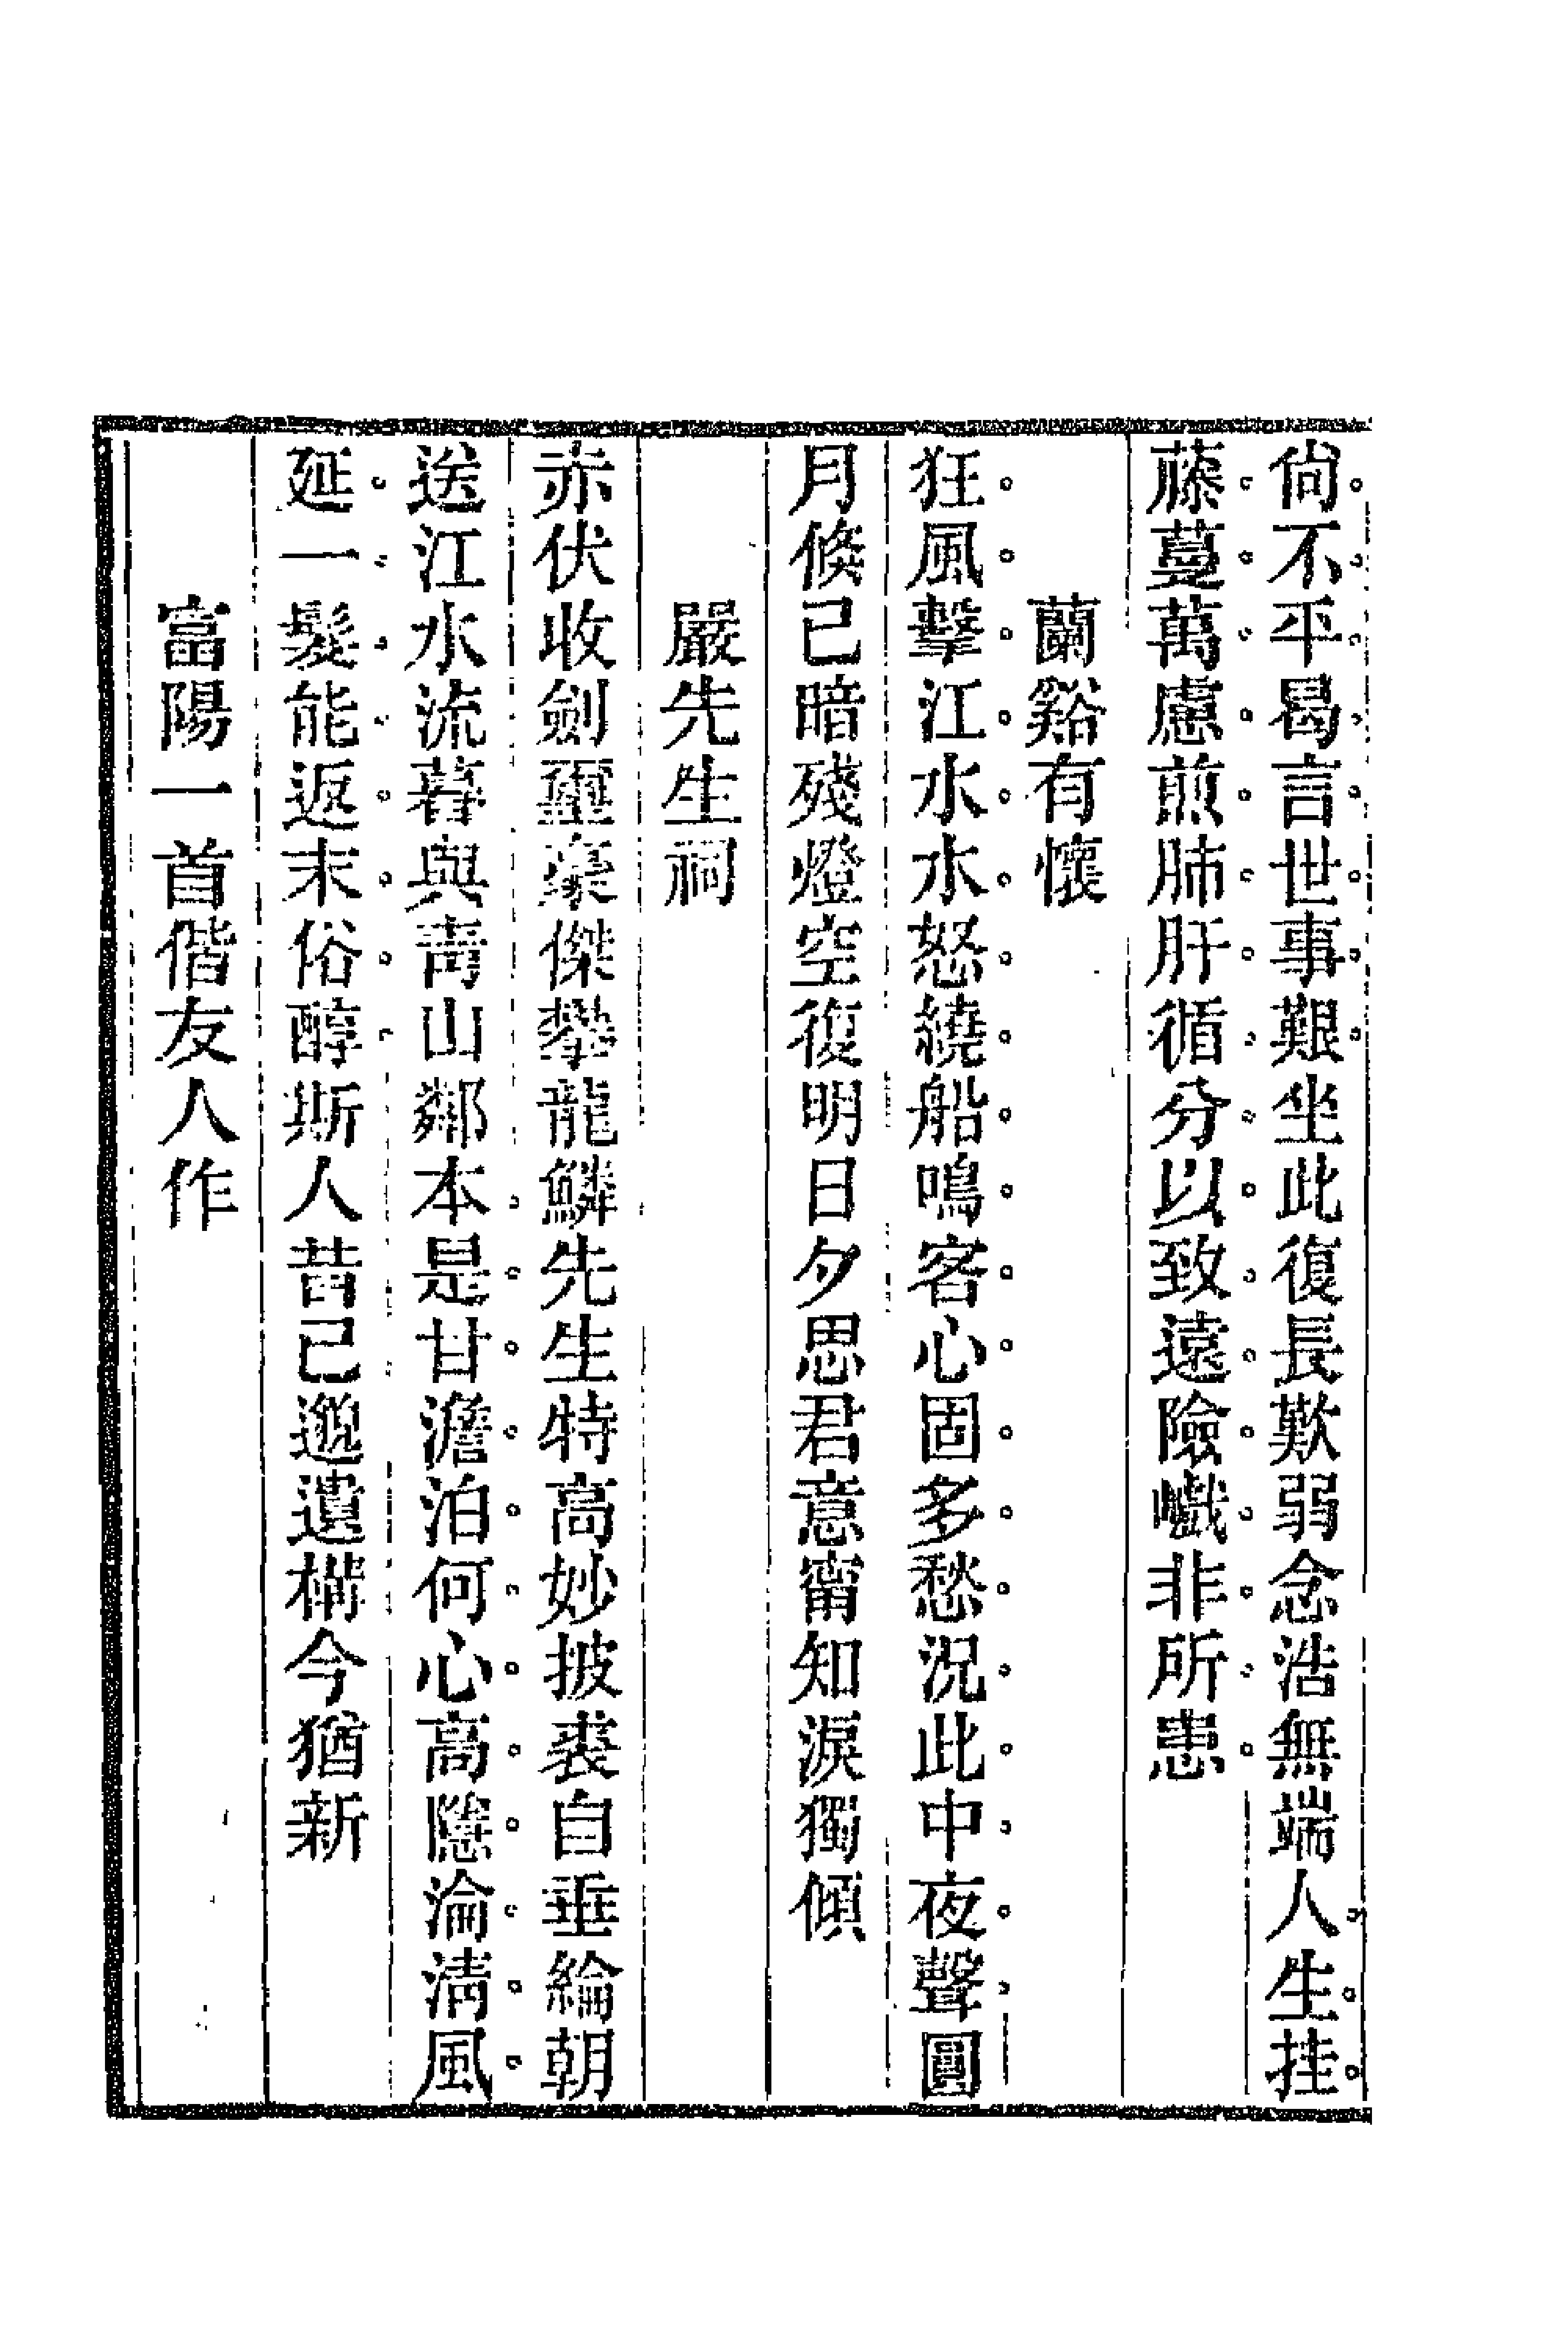 尙不平曷言世事艱坐此復長歎弱念浩無端人生挂
藤蔓萬慮煎肺肝循分以致遠險巇非所患
蘭谿有懷
狂風擊江水水怒繞船鳴客心固多愁況此中夜聲圓
月倏已暗殘燈空復明日夕思君意甯知淚獨傾
嚴先生祠
赤伏收劍璽豪傑攀龍鱗先生特高妙披裘自垂綸朝
送江水流暮與靑山鄰本是甘澹泊何心高隱淪淸風
延一髮能返末俗醇斯人昔已邈遺構今猶新
富陽一首偕友人作